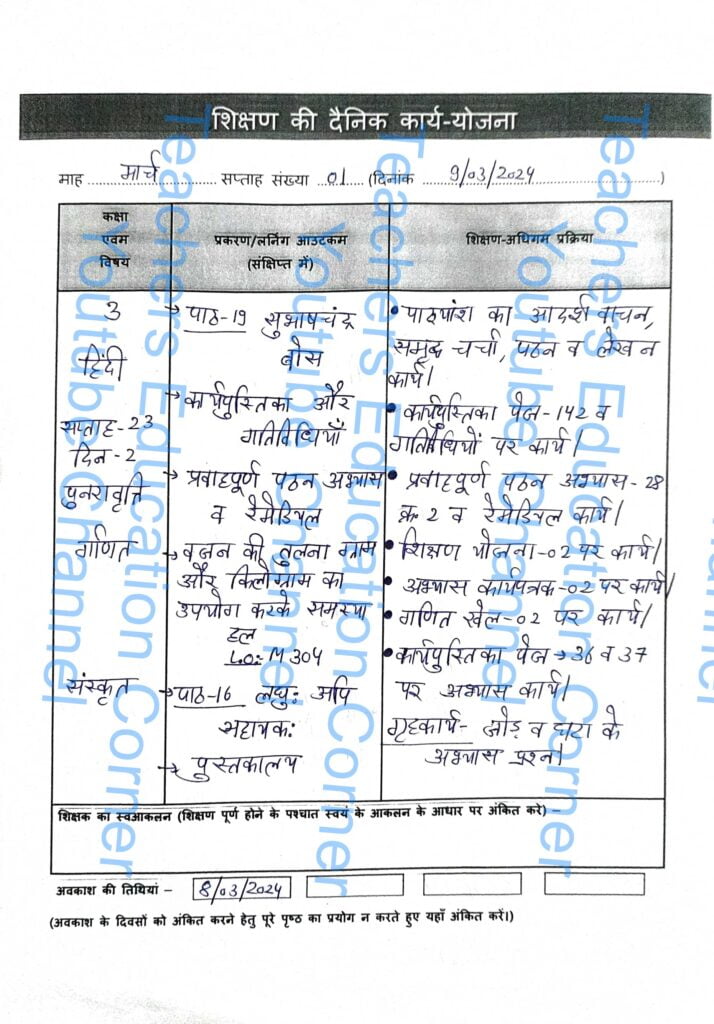 शिक्षण की दैनिक कार्य-योजना
माह मार्च सप्ताह संख्या 01 (दिनांक 9/03/2024)
कक्षा
एवम
विषय
प्रकरण/लर्निंग आउटकम
(संक्षिप्त में)
शिक्षण-अधिगम प्रक्रिया
3
हिंदी
सप्ताह-23
दिन-2
पुनरावृत्ति
गणित
संस्कृत
→ पाठ-19 सुभाषचंद्र
बोस
→ कार्यपुस्तिका और
गतिविधियाँ
→ प्रवाहपूर्ण पठन अभ्यास
व रेमेडियल
→ वजन की तुलना ग्राम
और किलोग्राम का
उपयोग करके समस्या
हल
L.O:- M 304
→ पाठ-16 लघु: अपि
सहायक:
→ पुस्तकालय
• पाठ्यांश का आदर्श वाचन,
समृद्ध चर्चा, पठन व लेखन
कार्य।
• कार्यपुस्तिका पेज-142 व
गतिविधियों पर कार्य।
• प्रवाहपूर्ण पठन अभ्यास-28
क्र. 2 व रेमेडियल कार्य।
• शिक्षण योजना-02 पर कार्य।
• अभ्यास कार्यपत्रक-02 पर कार्य।
• गणित खेल-02 पर कार्य।
• कार्यपुस्तिका पेज → 36 व 37
पर अभ्यास कार्य।
गृहकार्य- जोड़ व घटा के
अभ्यास प्रश्न।
शिक्षक का स्वआकलन (शिक्षण पूर्ण होने के पश्चात स्वयं के आकलन के आधार पर अंकित करे) –
अवकाश की तिथियां – 8/03/2024
(अवकाश के दिवसों को अंकित करने हेतु पूरे पृष्ठ का प्रयोग न करते हुए यहाँ अंकित करें।)
Teachers Education Corner
Youtube Channel
Teachers Education Corner
Youtube Channel
Teachers Education Corner
Youtube Channel